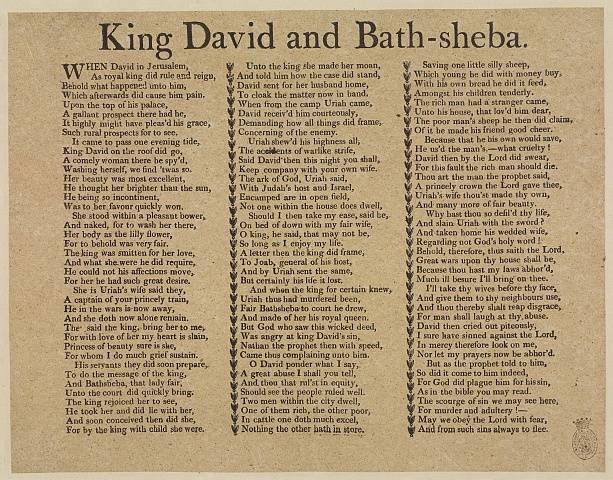 King David and Bath-sheba.
WHEN David in Jerusalem,
As royal king did rule and reign,
Behold what happened unto him,
Which afterwards did cause him pain.
Upon the top of his palace,
A gallant prospect there had he,
It highly might have pleas'd his grace,
Such rural prospects for to see.
It came to pass one evening tide,
King David on the roof did go,
A comely woman there he spy'd,
Washing herself, we find 'twas so.
Her beauty was most excellent,
He thought her brighter than the sun,
He being so incontinent,
Was to her favour quickly won.
She stood within a pleasant bower,
And naked, for to wash her there,
Her body as the lilly flower,
For to behold was very fair.
The king was smitten for her love,
And what she were he did require,
He could not his affections move,
For her he had such great desire.
She is Uriah's wife said they,
A captain of your princely train,
He in the wars is now away,
And she doth now alone remain.
The said the king, bring her to me,
For with love of her my heart is slain,
Princess of beauty sure is she,
For whom I do much grief sustain.
His servants they did soon prepare,
To do the message of the king,
And Bathsheba, that lady fair,
Unto the court did quickly bring.
The king rejoiced her to see,
He took her and did lie with her,
And soon conceived then did she,
For by the king with child she were.
Unto the king she made her moan,
And told him how the case did stand,
David sent for her husband home,
To cloak the matter now in hand.
When from the camp Uriah came,
David receiv'd him courteously,
Demanding how all things did frame,
Concerning of the enemy.
Uriah shew'd his highness all,
The accidents of warlike strife,
Said David then this night you shall,
Keep company with your own wife.
The ark of God, Uriah said,
With Judah's host and Israel,
Encamped are in open field,
Not one within the house does dwell,
Should I then take my ease, said he,
On bed of down with my fair wife,
O king, he said, that may not be,
So long as I enjoy my life.
A letter then the king did frame,
To Joab, general of his host,
And by Uriah sent the same,
But certainly his life is lost.
And when the king for certain knew,
Uriah thus had murdered been,
Fair Bathsheba to court he drew,
And made of her his royal queen.
But God who saw this wicked deed,
Was angry at king David's sin,
Nathan the prophet then with speed,
Came thus complaining unto him.
O David ponder what I say,
A great abuse I shall you tell,
And thou that rul'st in equity,
Should see the people ruled well.
Two men within the city dwell,
One of them rich, the other poor,
In cattle one doth much excel,
Nothing the other hath in store.
Saving one little silly sheep,
Which young he did with money buy,
With his own bread he did it feed,
Amongst his children tenderly.
The rich man had a stranger came,
Unto his house, that lov'd him dear,
The poor man's sheep he then did claim,
Of it he made his friend good cheer.
Because that he his own would save,
He us'd the man's.—what cruelty!
David then by the Lord did swear,
For this fault the rich man should die.
Thou art the man the prophet said,
A princely crown the Lord gave thee,
Uriah's wife thou'st made thy own,
And many more of fair beauty.
Why hast thou so defil'd thy life,
And slain Uriah with the sword?
And taken home his wedded wife,
Regarding not God's holy word!
Behold, therefore, thus saith the Lord,
Great wars upon thy house shall be,
Because thou hast my laws abhor'd,
Much ill besure I'll bring on thee.
I'll take thy wives before thy face,
And give them to thy neighbours use,
And thou thereby shalt reap disgrace,
For man shall laugh at thy abuse.
David then cried out piteously,
I sure have sinned against the Lord,
In mercy therefore look on me,
Nor let my prayers now be abhor'd.
But as the prophet told to him,
So did it come to him indeed,
For God did plague him for his sin,
As in the bible you may read.
The scourge of sin we may see here,
For murder and adultery!—
May we obey the Lord with fear,
And from such sins always to flee.